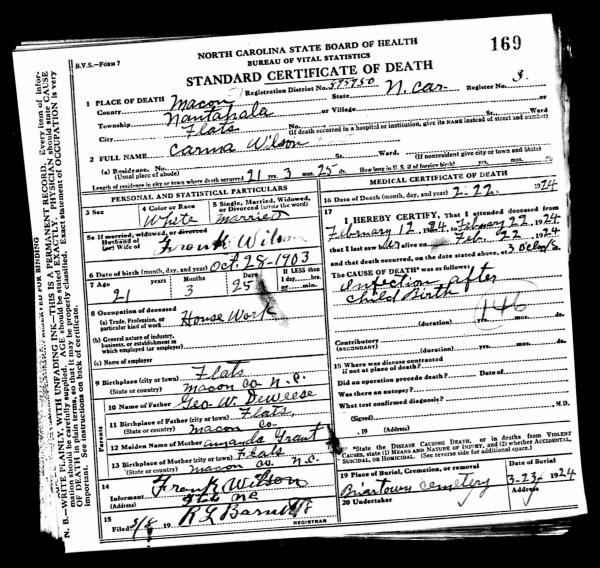 169
NORTH CAROLINA STATE BOARD OF HEALTH
BUREAU OF VITAL STATISTICS
B.V.S.—FORM 7
STANDARD CERTIFICATE OF DEATH
1 PLACE OF DEATH
Registration District No. 595750
Register No. 3.
County Macon
State N. Car.
Township Nantahala
or Village or
City Flats No. St. Ward.
(If death occurred in a hospital or institution, give its NAME instead of street and number)
2 FULL NAME Carma Wilson
(a) Residence. No. St. Ward.
(Usual place of abode)
(If nonresident give city or town and State)
Length of residence in city or town where death occurred 21 yrs. 3 mos. 25 ds.
How long in U. S. if of foreign birth? yrs. mos. ds.
PERSONAL AND STATISTICAL PARTICULARS
3 Sex
4 Color or Race White
5 Single, Married, Widowed, or Divorced (write the word) Married
5a If married, widowed, or divorced
Husband of
(or) Wife of Frank Wilson
6 Date of birth (month, day, and year) Oct. 28-1903
7 Age Years 21
Months 3
Days 25
If LESS than
1 day, hrs.
or min.
8 Occupation of deceased
(a) Trade, Profession, or
particular kind of work House Work
(b) General nature of industry,
business, or establishment in
which employed (or employer)
(c) Name of employer
9 Birthplace (city or town) Flats
(State or country) Macon Co N.C.
Parents
10 Name of Father Geo W. Deweese
11 Birthplace of Father (city or town) Flats,
(State or country) Macon Co
12 Maiden Name of Mother Amanda Grant
13 Birthplace of Mother (city or town) Flats
(State or country) Macon Co. N.C.
14
Informant Frank Wilson
(Address) Flats NC
15
Filed 3/8, 19 R L Barnett
REGISTRAR
MEDICAL CERTIFICATE OF DEATH
16 Date of Death (month, day, and year) 2-22. 1924
17
I HEREBY CERTIFY, That I attended deceased from
February 12, 1924, to February 22, 1924
that I last saw her alive on Feb. 22, 1924
and that death occurred, on the date stated above, at 3 Oclock
The CAUSE OF DEATH* was as follows:
Infection after
Child Birth
146
(duration) yrs. mos. ds.
Contributory
(SECONDARY)
(duration) yrs. mos. ds.
18 Where was disease contracted
if not at place of death?
Did an operation precede death? Date of
Was there an autopsy?
What test confirmed diagnosis?
(Signed) M.D.
, 19 (Address)
*State the DISEASE CAUSING DEATH, or in deaths from VIOLENT
CAUSES, state (1) MEANS AND NATURE OF INJURY, and (2) whether ACCIDENTAL,
SUICIDAL, or HOMICIDAL. (See reverse side for additional space.)
19 Place of Burial, Cremation, or removal
Briartown Cemetery
Date of Burial
3-23- 1924
20 Undertaker
Address
RESERVED FOR BINDING
N. B.—WRITE PLAINLY, WITH UNFADING INK—THIS IS A PERMANENT RECORD. Every item of information should be carefully supplied. AGE should be stated EXACTLY. PHYSICIAN should state CAUSE OF DEATH in plain terms, so that it may be properly classified. Exact statement of OCCUPATION is very important. See instructions on back of certificate.